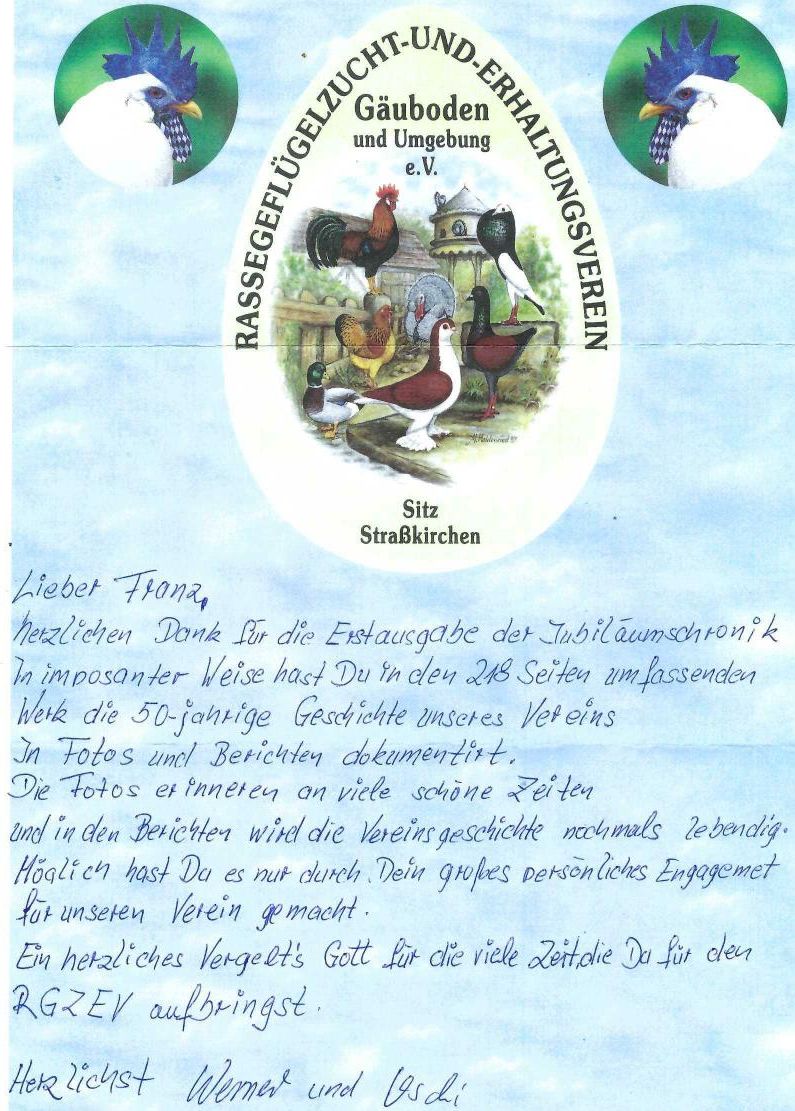 RASSEGEFLÜGELZUCHT-UND-ERHALTUNGSVEREIN
Gäuboden
und Umgebung
e.V.
Sitz
Straßkirchen
Lieber Franz,
herzlichen Dank für die Erstausgabe der Jubiläumschronik
In imposanter Weise hast Du in den 218 Seiten umfassenden
Werk die 50-jahrige Geschichte unseres Vereins
In Fotos und Berichten dokumentirt.
Die Fotos erinneren an viele schöne Zeiten
und in den Berichten wird die Vereinsgeschichte nochmals lebendig.
Möglich hast Du es nur durch Dein großes persönliches Engagemet
für unseren Verein gemacht.
Ein herzliches Vergelt's Gott für die viele Zeit, die Du für den
RGZEV aufbringst.
Herzlichst Werner und Uschi